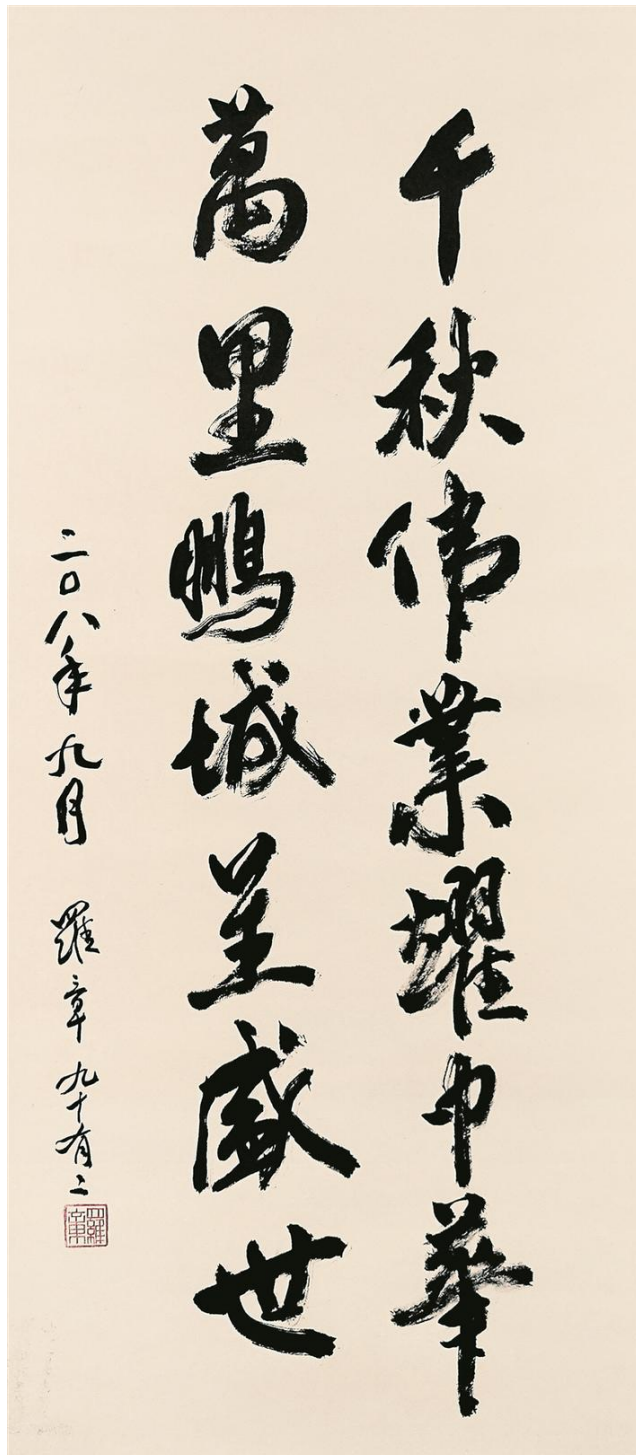 千秋伟業耀中華
萬里鵬城呈盛世
二〇八年九月 羅章九十有二
羅章